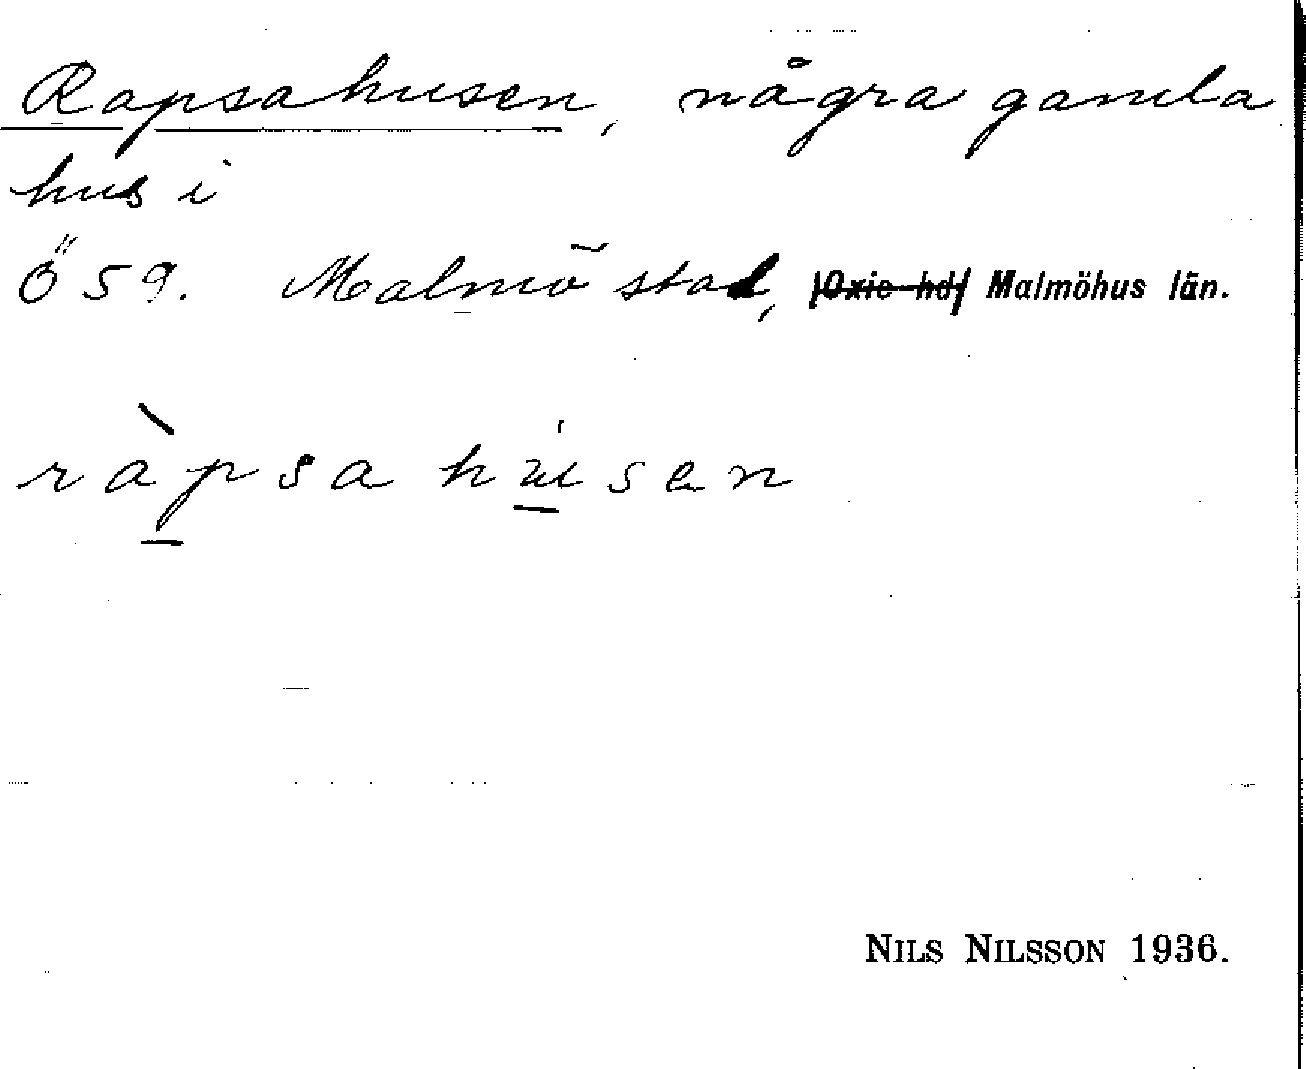 Rapsahusen, några gamla
hus i
Ö 59. Malmö stad, |Oxie hd| Malmöhus län.
ràpsa husen
NILS NILSSON 1936.